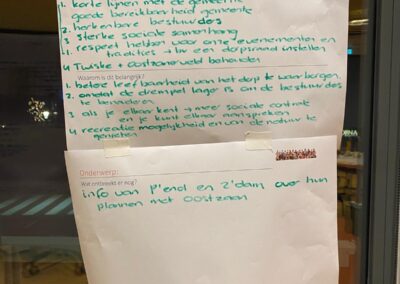 1. korte lijnen met de gemeente
goede bereikbaarheid gemeente
2. herkenbare bestuurders
3. sterke sociale samenhang
4. respect hebben voor onze evenementen en
tradities → bv een dorpsraad instellen
4 Twiske + Oostzanerveld behouden
Waarom is dit belangrijk?
1. betere leefbaarheid van het dorp te waarborgen
2. omdat de drempel lager is om de bestuurders
te benaderen
3 als je elkaar kent → meer sociale controle
en je kunt elkaar aanspreken
4 recreatie mogelijkheid en van de natuur te
genieten
Onderwerp:
Wat ontbreekt er nog?
info van P'end en Z'dam over hun
plannen met Oostzaan